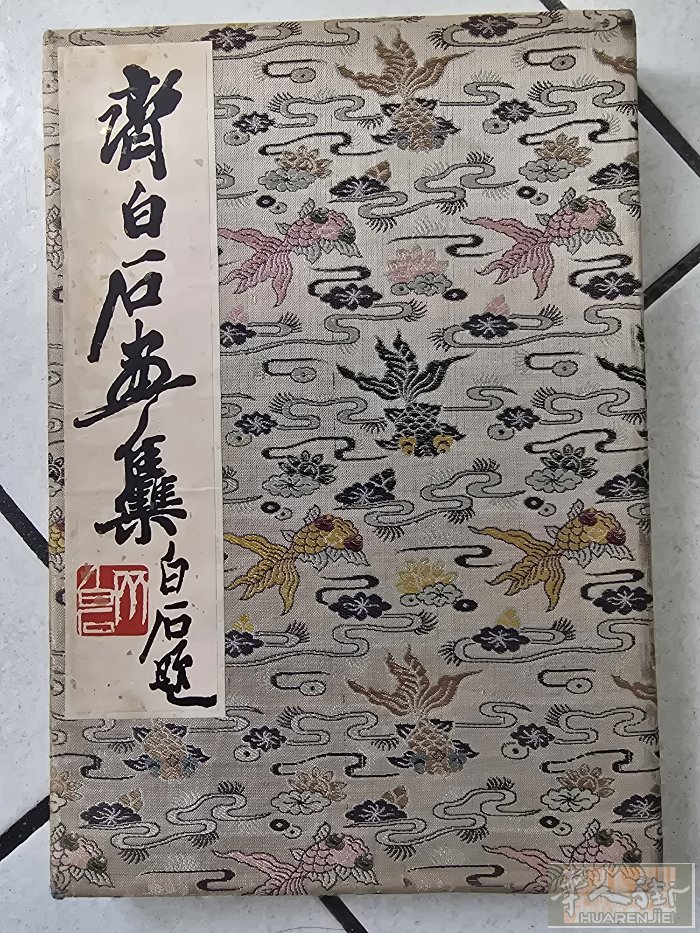 齊白石画集
白石题
华人街
HUARENJIE